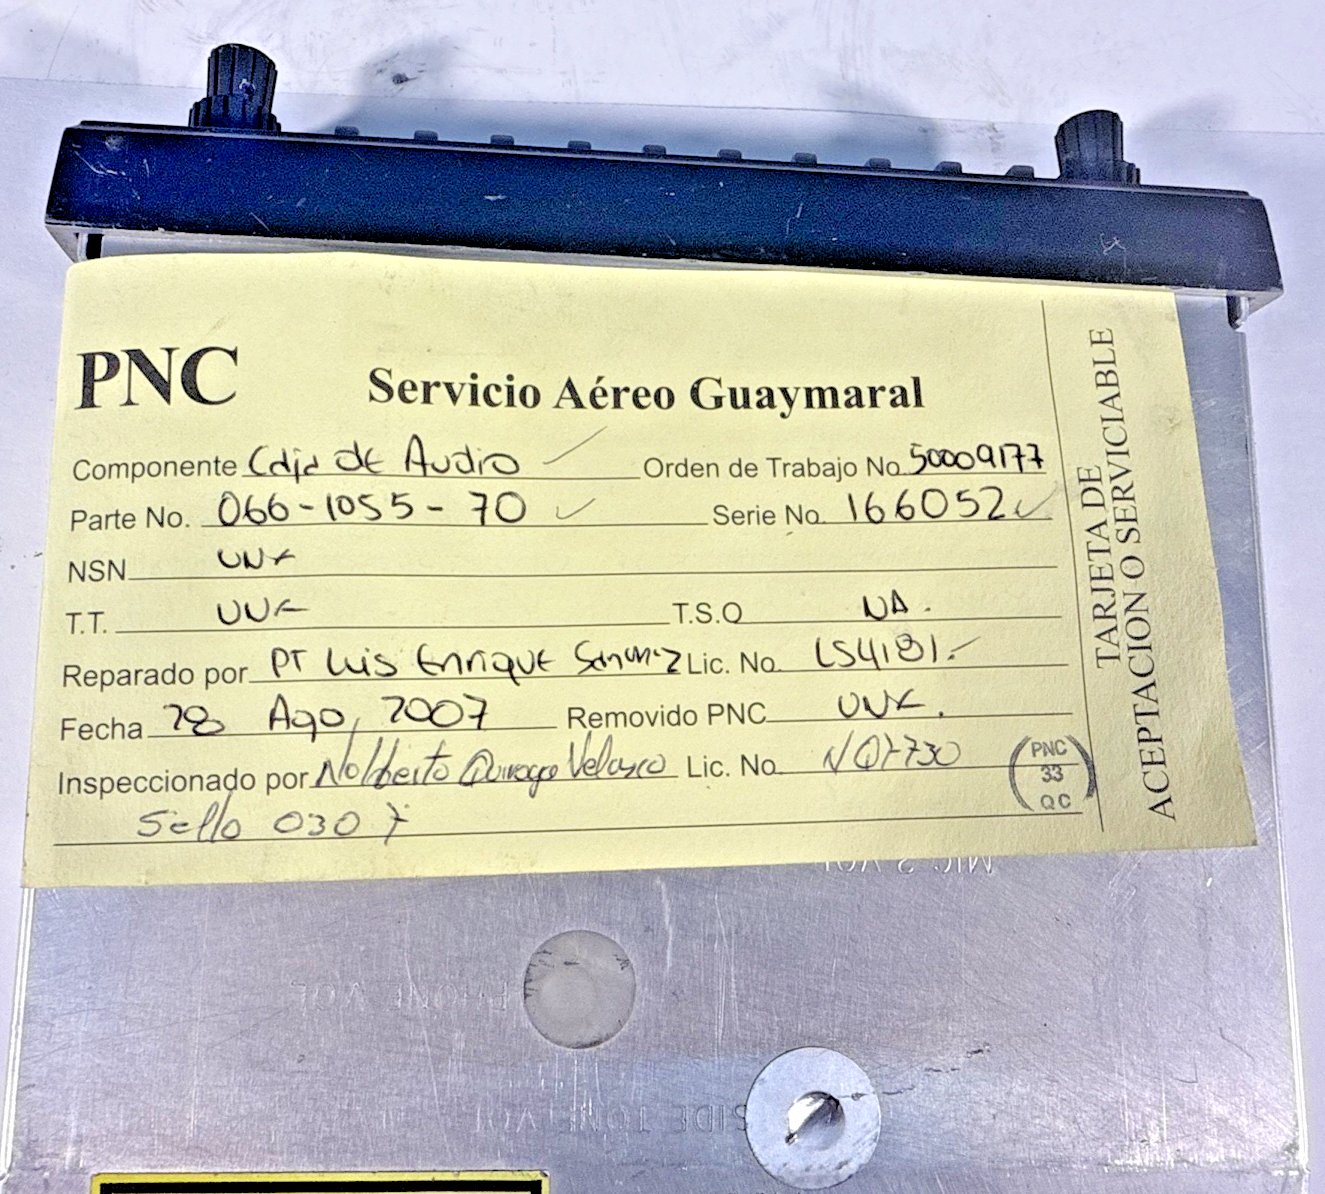 PNC Servicio Aéreo Guaymaral
Componente Caja de Audio Orden de Trabajo No 50009177
Parte No. 066-1055-70 Serie No. 166052
NSN UNK
T.T. UNK T.S.O NA.
Reparado por PT Luis Enrique Sanchez Lic. No. LS4181
Fecha 28 Ago, 2007 Removido PNC UNK.
Inspeccionado por Nolberto Quiroga Velasco Lic. No. NQV730
Sello 030
PNC
33
QC
TARJETA DE
ACEPTACION O SERVICIABLE
MIC 2 VOL
PHONE VOL
SIDE TONE VOL